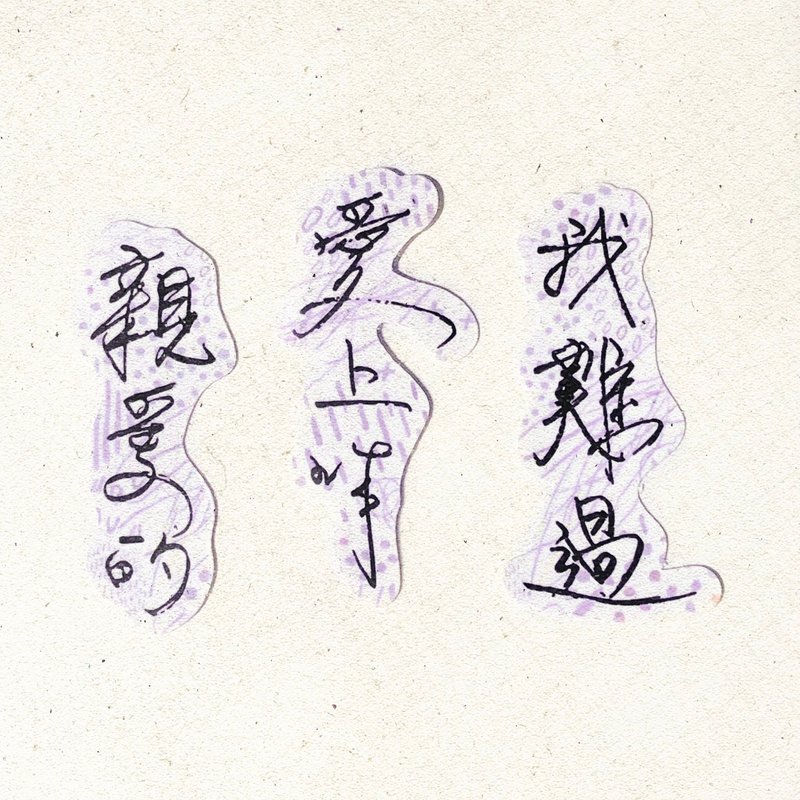 親愛的
愛上
我難過